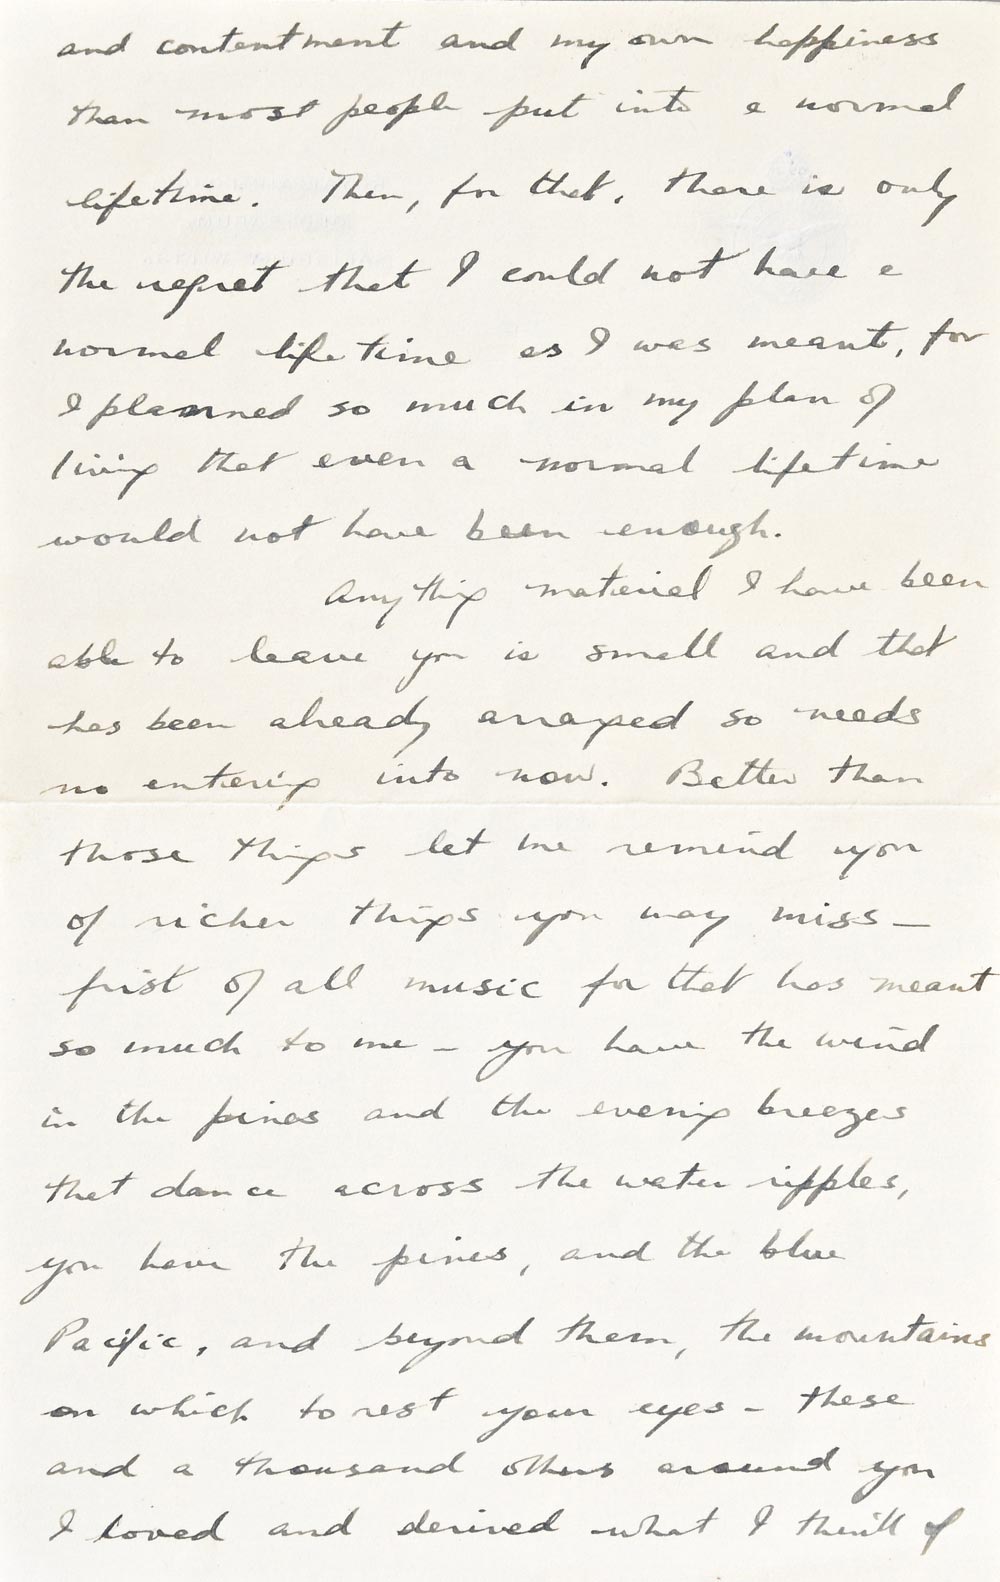 and contentment and my own happiness
than most people put into a normal
lifetime. Then, for that, there is only
the regret that I could not have a
normal lifetime as I was meant, for
I planned so much in my plan of
living that even a normal lifetime
would not have been enough.
Anything material I have been
able to leave you is small and that
has been already arranged so needs
no entering into now. Better than
those things let me remind you
of richer things you may miss –
first of all music for that has meant
so much to me – you have the wind
in the pines and the evening breezes
that dance across the water ripples,
you have the pines, and the blue
Pacific, and beyond them, the mountains
on which to rest your eyes – these
and a thousand others around you
I loved and derived what I thrill of